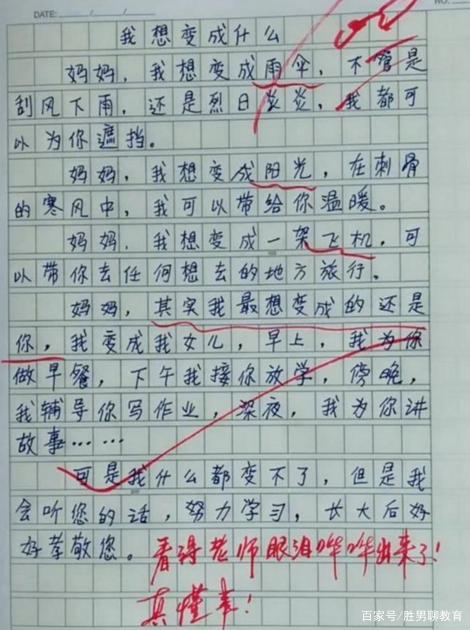 DATE:
NO.
我想变成什么
妈妈,我想变成雨伞,不管是
刮风下雨,还是烈日炎炎,我都可
以为你遮挡。
妈妈,我想变成阳光,在刺骨
的寒风中,我可以带给你温暖。
妈妈,我想变成一架飞机,可
以带你去任何想去的地方旅行。
妈妈,其实我最想变成的还是
你,我变成我女儿,早上,我为你
做早餐,下午我接你放学,傍晚,
我辅导你写作业,深夜,我为你讲
故事……
可是我什么都变不了,但是我
会听您的话,努力学习,长大后好
好孝敬您。
看得老师眼泪哗哗出来了!
真懂事!
百家号/胜男聊教育